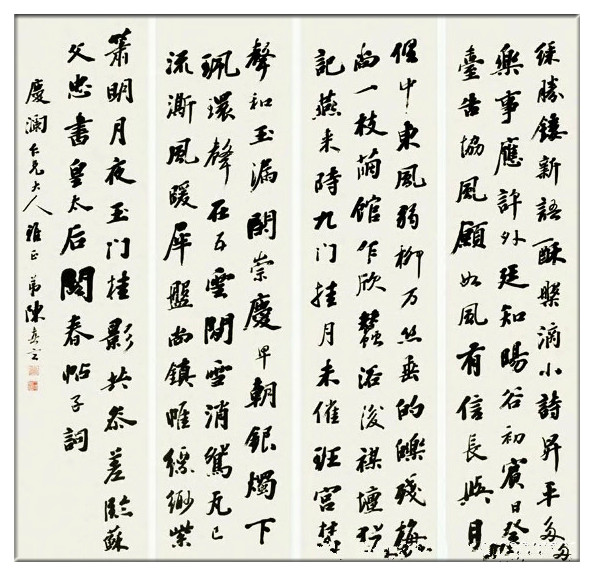 綵勝鏤新語酥槃滴小詩昇平多
樂事應許外廷知暘谷初賓日登
臺告協風願如風有信長與日
俱中東風弱柳万絲垂的皪殘梅
尚一枝繭館乍欣蠶浴後禖壇猶
記燕来時九门挂月未催班宮禁
聲和玉漏閒崇慶早朝銀燭下
珮環聲在五雲間雪消鴛瓦已
流澌風暖犀盤尚鎮帷縹緲紫
簫明月夜玉门桂影共參差臨蘇
文忠書皇太后閣春帖子詞
慶瀾仁兄大人雅正弟陳